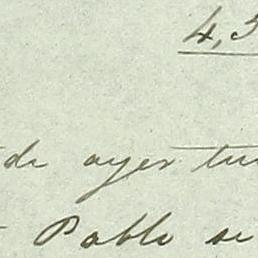 4,5
de ayer tu
Pablo se